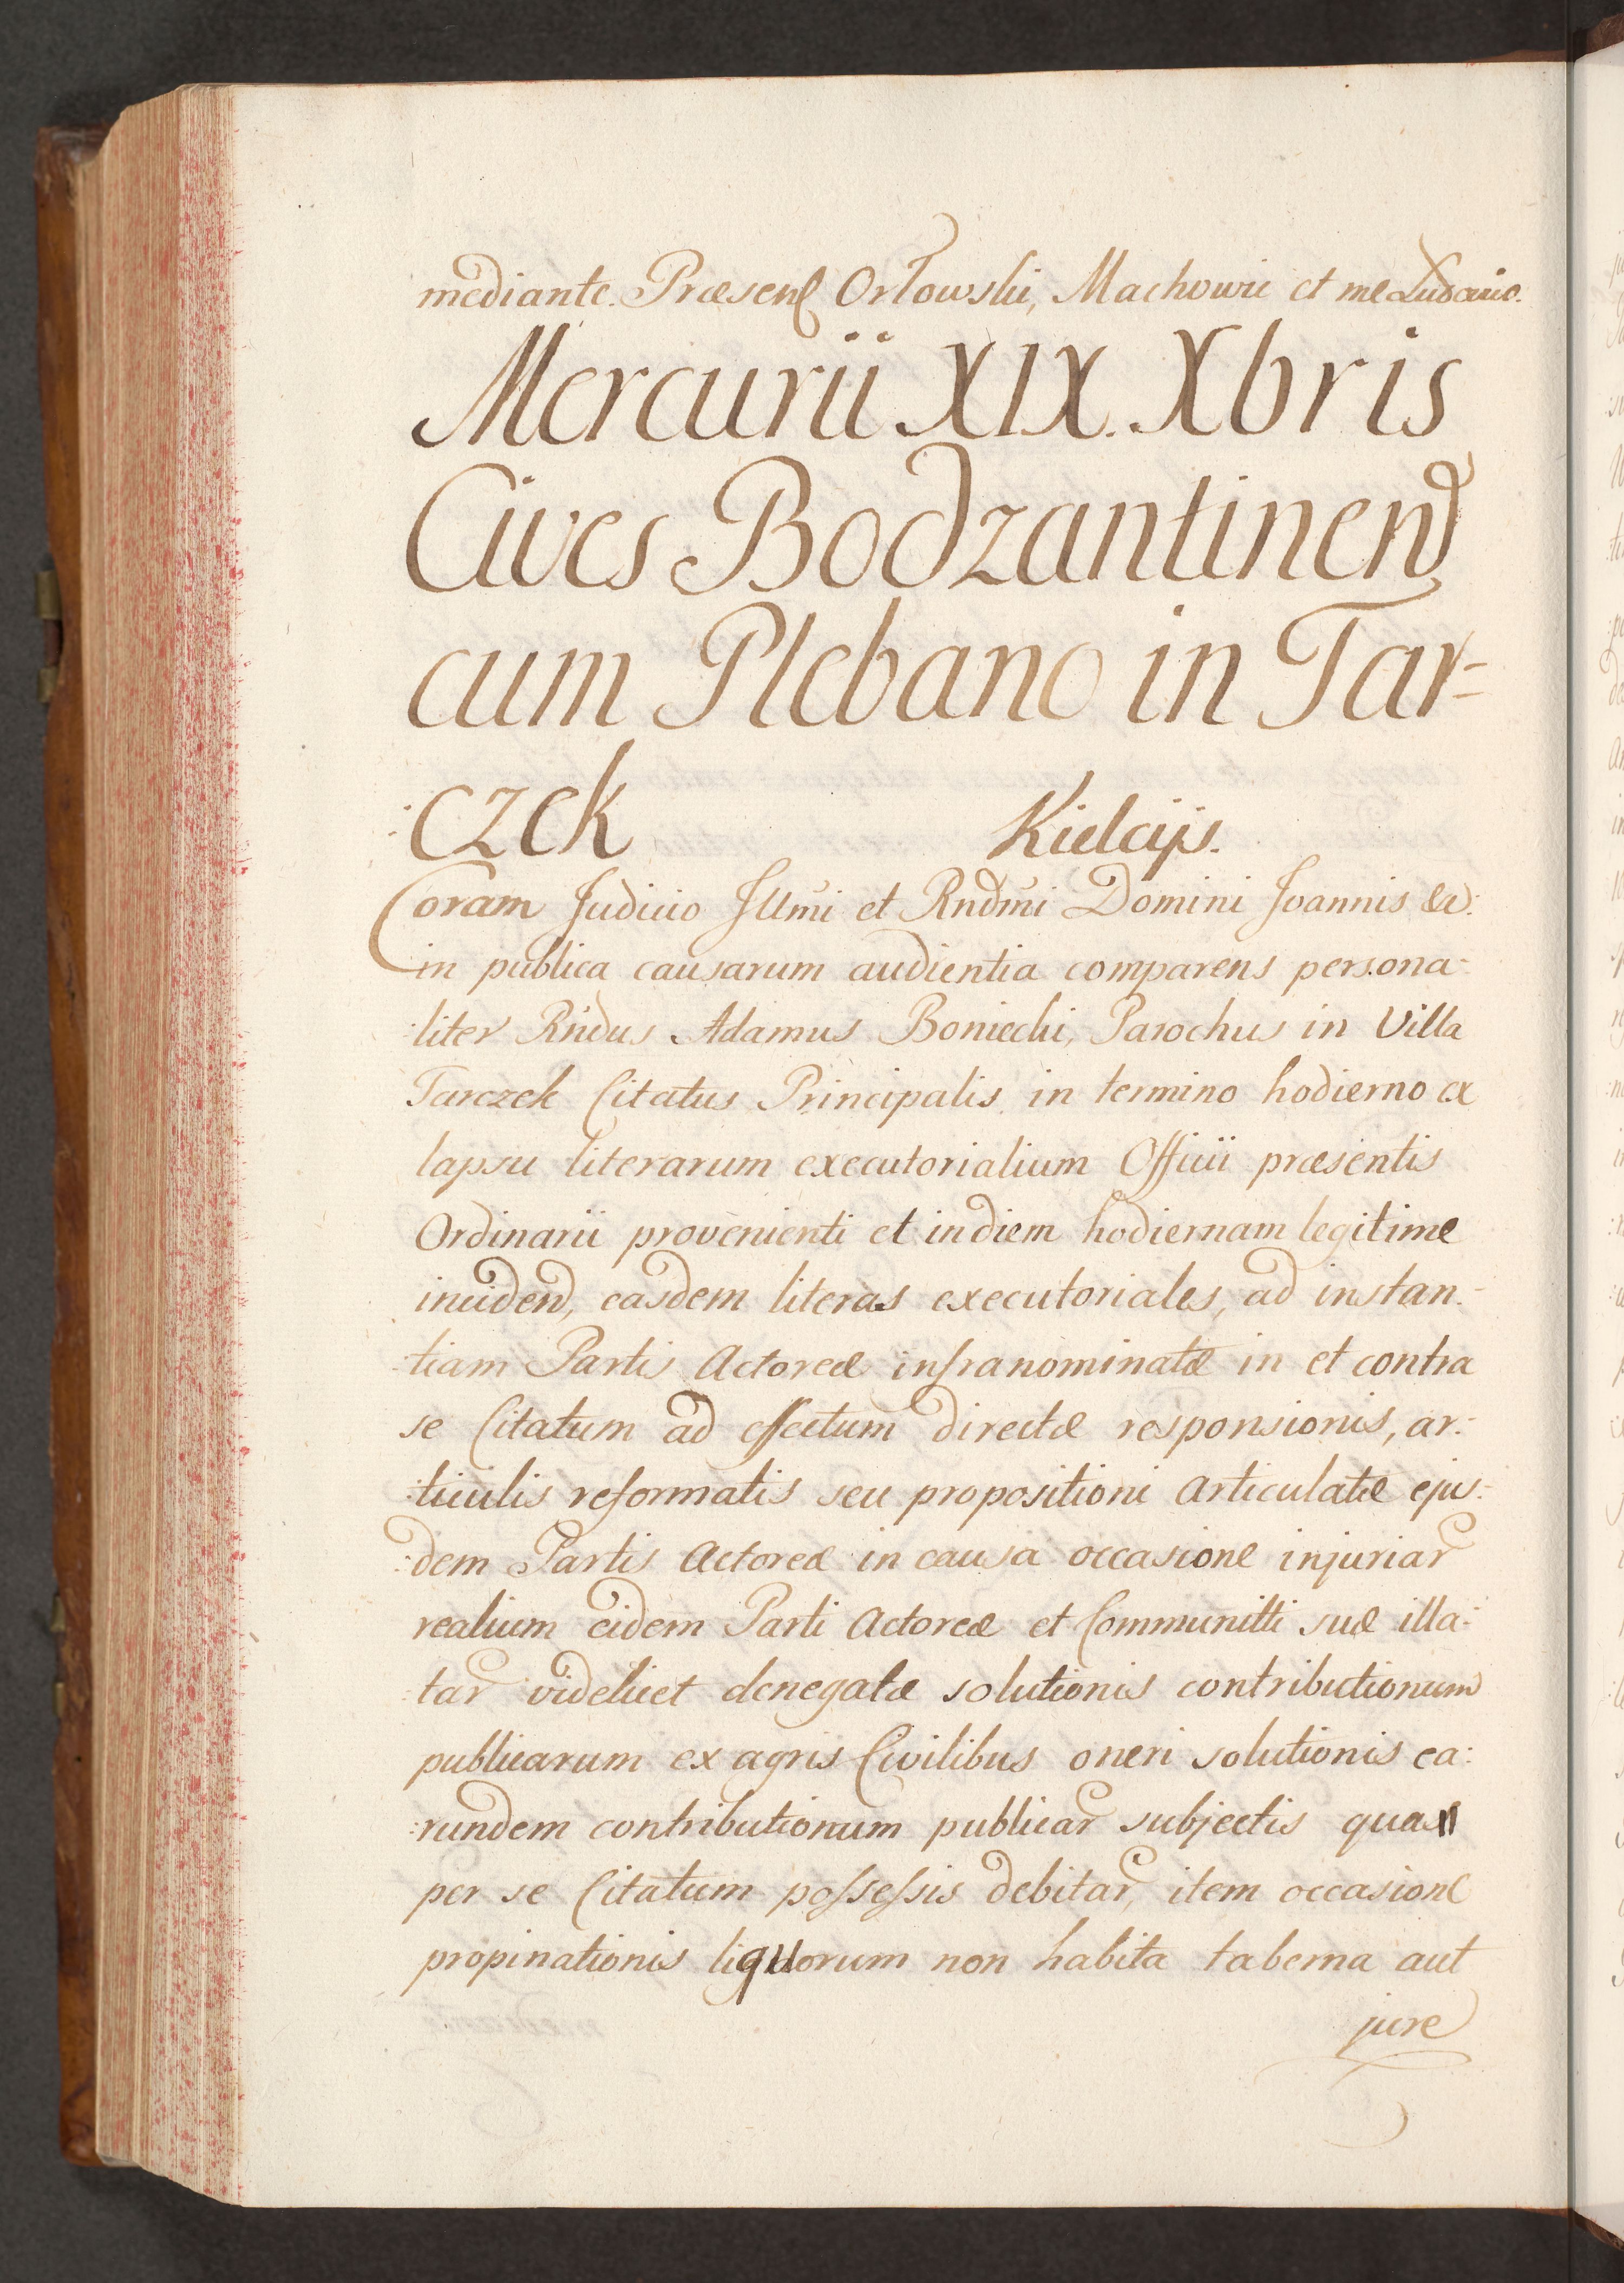 mediante. Præsen Orłowski, Machowic et me
Mercurii XIX. Xbris
Cives Bodzantinen
cum Plebano in Tar-
:czek Kielcijs.
Coram Judicio Illmi et Rndmi Domini Joannis &c:
in publica causarum audientia comparens persona-
:liter Rndus Adamus Boniecki, Parochus in Villa
Tarczek Citatus Principalis in termino hodierno ex
lapsu literarum executorialium Officii præsentis
Ordinarii provenienti et in diem hodiernam legitime
inciden, easdem literas executoriales, ad instan-
-tiam Partis Actoreæ infranominatæ in et contra
se Citatum ad effectum directæ responsionis, ar:
:ticulis reformatis seu propositioni articulatæ ejus:
:dem Partis Actoreæ in causa occasione injuriar
realium eidem Parti Actoreæ et Communitti suæ illa:
:tar videlicet denegatæ solutionis contributionum
publicarum ex agris Civilibus oneri solutionis ea:
:rundem contributionum publicar subjectis quasi
per se Citatum possessis debitar, item occasione
propinationis liquorum non habita taberna aut
jure